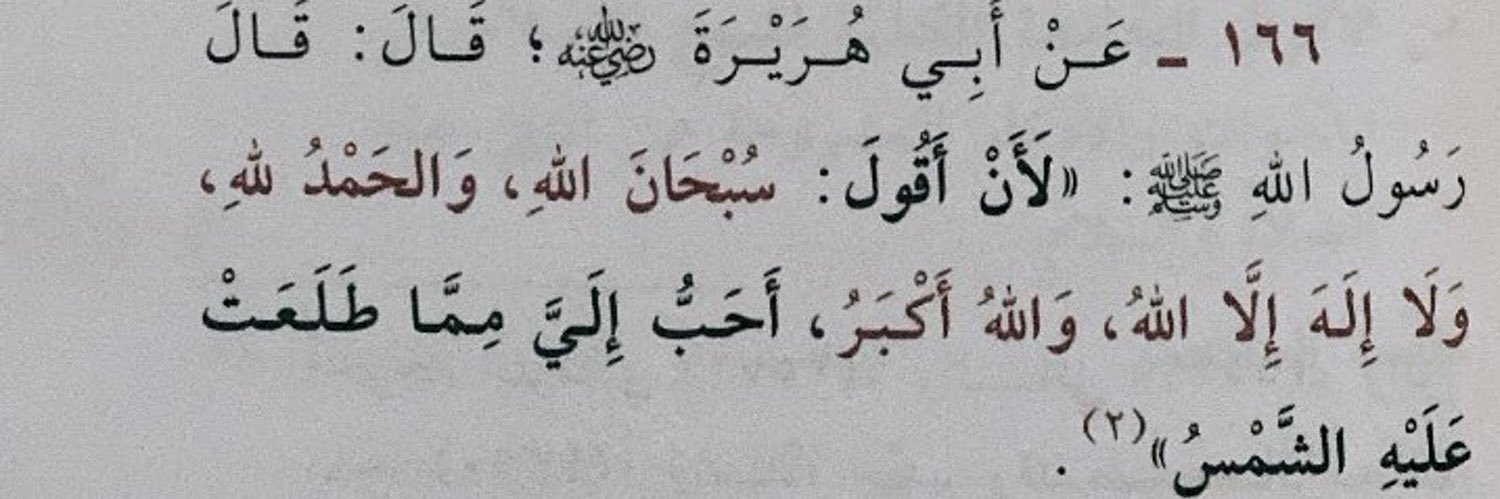 ١٦٦ ـ عَنْ أَبِي هُرَيْرَةَ رضي الله عنه؛ قَالَ: قَالَ
رَسُولُ اللهِ ﷺ: «لَأَنْ أَقُولَ: سُبْحَانَ اللهِ، وَالحَمْدُ للهِ،
وَلَا إِلَهَ إِلَّا اللهُ، وَاللهُ أَكْبَرُ، أَحَبُّ إِلَيَّ مِمَّا طَلَعَتْ
عَلَيْهِ الشَّمْسُ»(٢).